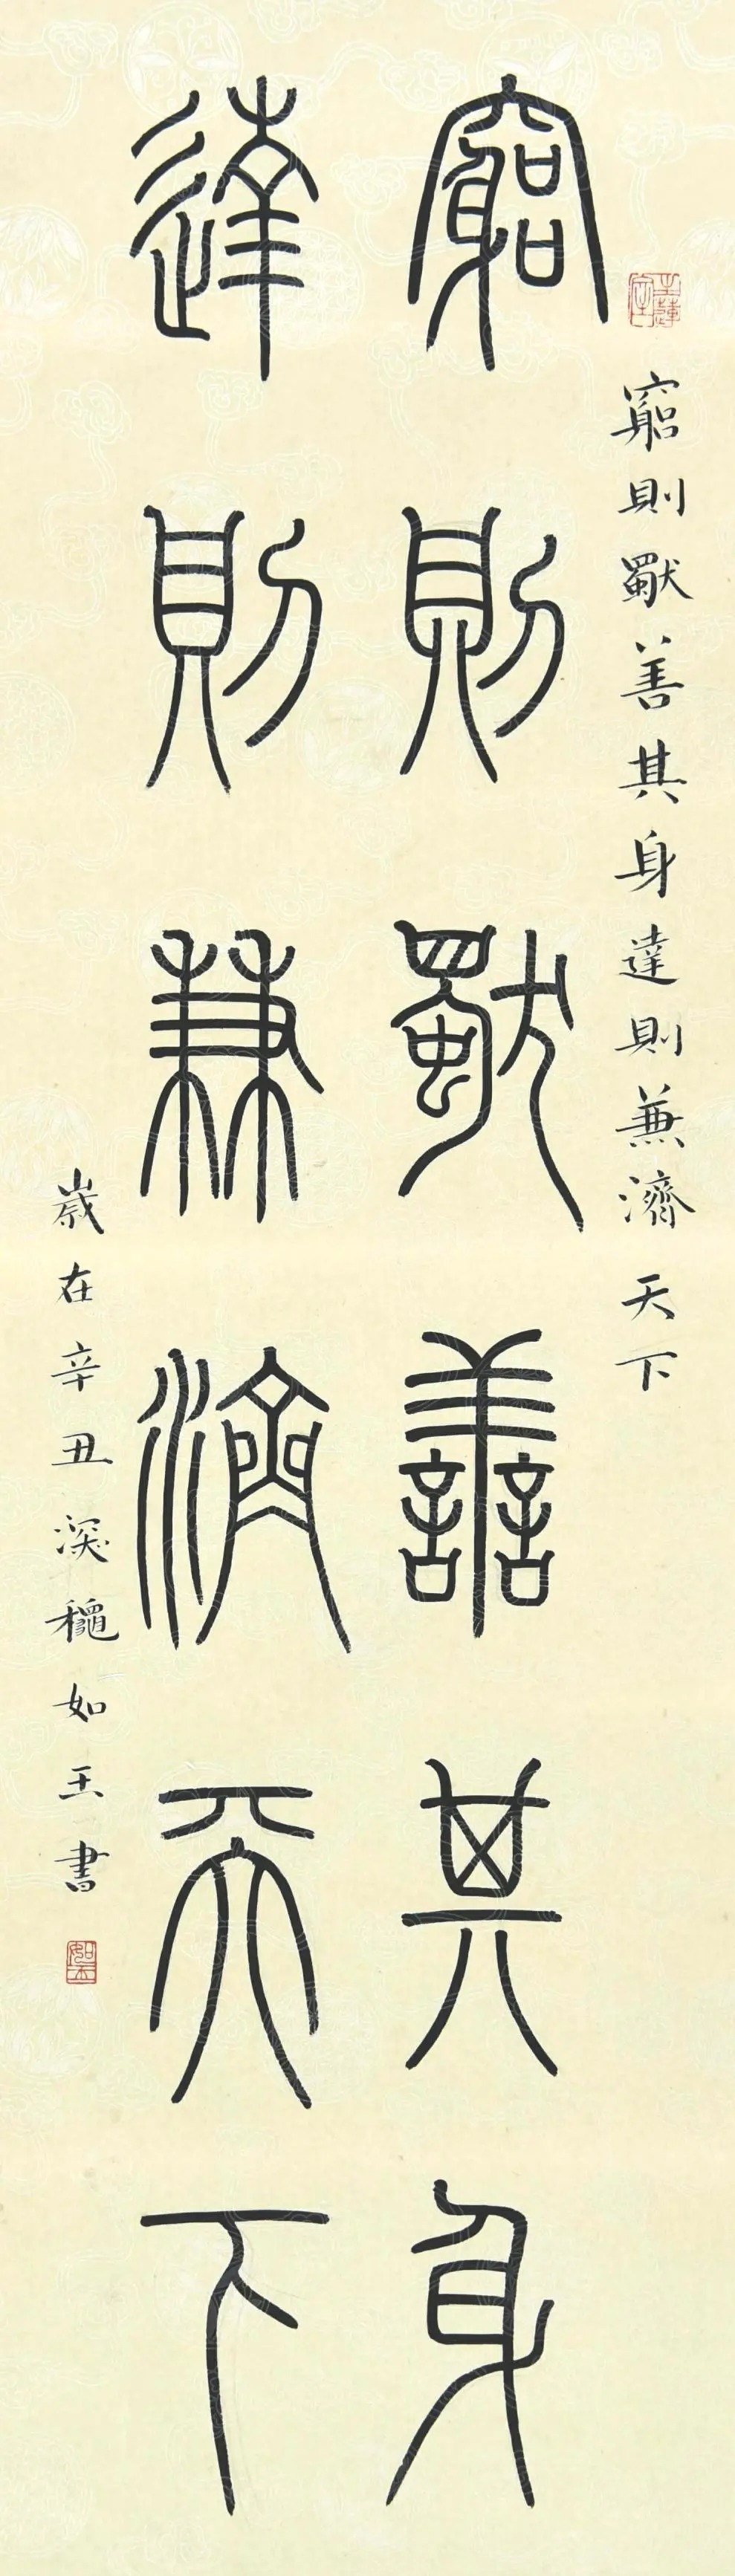 竆則獨善其身達則兼濟天下
竆則獨善其身
達則兼濟天下
歲在辛丑深龝如玉書
如玉